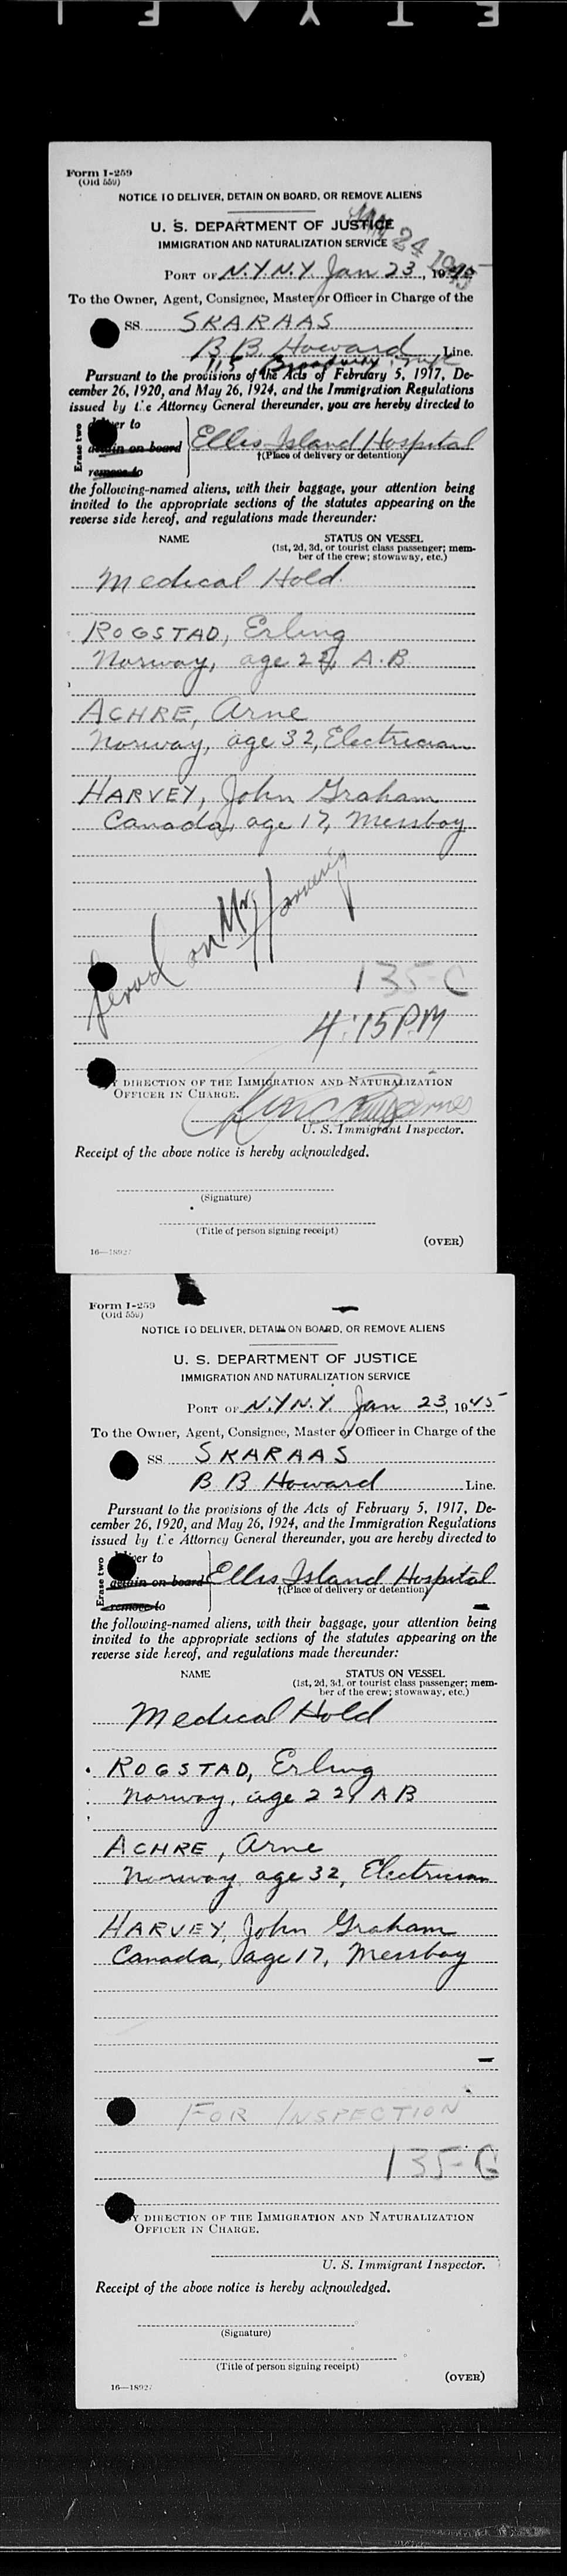 Form I-259
(Old 550)
NOTICE TO DELIVER, DETAIN ON BOARD, OR REMOVE ALIENS
U. S. DEPARTMENT OF JUSTICE
IMMIGRATION AND NATURALIZATION SERVICE
24 1945
PORT OF N.Y.N.Y. Jan 23, 1945
To the Owner, Agent, Consignee, Master or Officer in Charge of the
SS. SKARAAS
B B. Howard Line.
115 Broadway, nyc
Pursuant to the provisions of the Acts of February 5, 1917, De-
cember 26, 1920, and May 26, 1924, and the Immigration Regulations
issued by the Attorney General thereunder, you are hereby directed to
Erase two
er to
detain on board
remove to
Ellis Island Hospital
†(Place of delivery or detention)
the following-named aliens, with their baggage, your attention being
invited to the appropriate sections of the statutes appearing on the
reverse side hereof, and regulations made thereunder:
NAME STATUS ON VESSEL
(1st, 2d, 3d, or tourist class passenger; mem-
ber of the crew; stowaway, etc.)
Medical Hold.
ROGSTAD, Erling
Norway, age 22, A.B.
ACHRE, Arne
Norway, age 32, Electrician
HARVEY, John Graham
Canada, age 17, Messboy
on Mr.
135-C
4:15 PM
Y DIRECTION OF THE IMMIGRATION AND NATURALIZATION
OFFICER IN CHARGE.
U. S. Immigrant Inspector.
Receipt of the above notice is hereby acknowledged.
(Signature)
(Title of person signing receipt)
(OVER)
16—18927
Form I-259
(Old 550)
NOTICE TO DELIVER, DETAIN ON BOARD, OR REMOVE ALIENS
U. S. DEPARTMENT OF JUSTICE
IMMIGRATION AND NATURALIZATION SERVICE
PORT OF N.Y.N.Y. Jan 23, 1945
To the Owner, Agent, Consignee, Master or Officer in Charge of the
SS. SKARAAS
B B Howard Line.
Pursuant to the provisions of the Acts of February 5, 1917, De-
cember 26, 1920, and May 26, 1924, and the Immigration Regulations
issued by the Attorney General thereunder, you are hereby directed to
Erase two
er to
detain on board
remove to
Ellis Island Hospital
†(Place of delivery or detention)
the following-named aliens, with their baggage, your attention being
invited to the appropriate sections of the statutes appearing on the
reverse side hereof, and regulations made thereunder:
NAME STATUS ON VESSEL
(1st, 2d, 3d, or tourist class passenger; mem-
ber of the crew; stowaway, etc.)
Medical Hold
ROGSTAD, Erling
Norway, age 22, A B
ACHRE, Arne
Norway, age 32, Electrician
HARVEY, John Graham
Canada, age 17, Messboy
FOR INSPECTION
135-C
Y DIRECTION OF THE IMMIGRATION AND NATURALIZATION
OFFICER IN CHARGE.
U. S. Immigrant Inspector.
Receipt of the above notice is hereby acknowledged.
(Signature)
(Title of person signing receipt)
(OVER)
16—18927